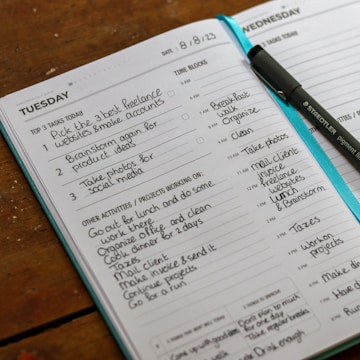 TUESDAY
DATE: 8/8/23
TOP 3 TASKS TODAY
1 Pick the 3 best freelance
websites & make accounts
2 Brainstorm again for
product ideas
3 Take photos for
social media
OTHER ACTIVITIES / PROJECTS WORKING ON:
Go out for lunch and do some
work there
Organize office and clean
Cook dinner for 2 days
Taxes
Mail client
Make invoice & send it
Continue projects
Go for a run
TIME BLOCKS
Breakfast
walk
Organize
clean
Take photos
mail client
invoice
freelance
websites
lunch
& Brainstorm
Taxes
Work on
projects
Make din
Have d
Ru
THINGS THAT WENT WELL TODAY
Come up with good ideas
THINGS TO IMPROVE
Don't plan to much
for one day
Take regular breaks
drink enough
WEDNESDAY
TASKS TODAY
STAEDTLER pigment